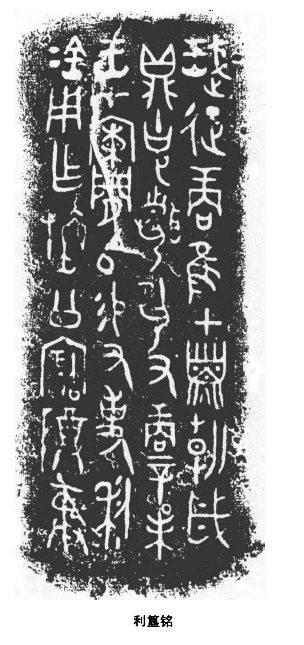 珷征商隹甲子朝歲
鼎克昏夙又商辛未
王才闌師易又事利
金用乍旜公寶尊彝
利簋铭